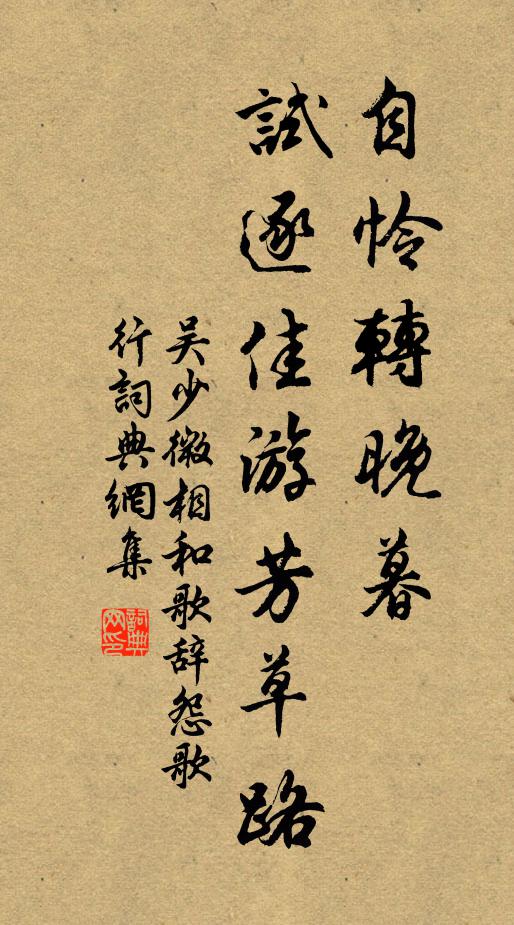 自怜轉晚暮
試逐佳游芳草路
吴少微相和歌辞怨歌
行詞典網集
詞典网印